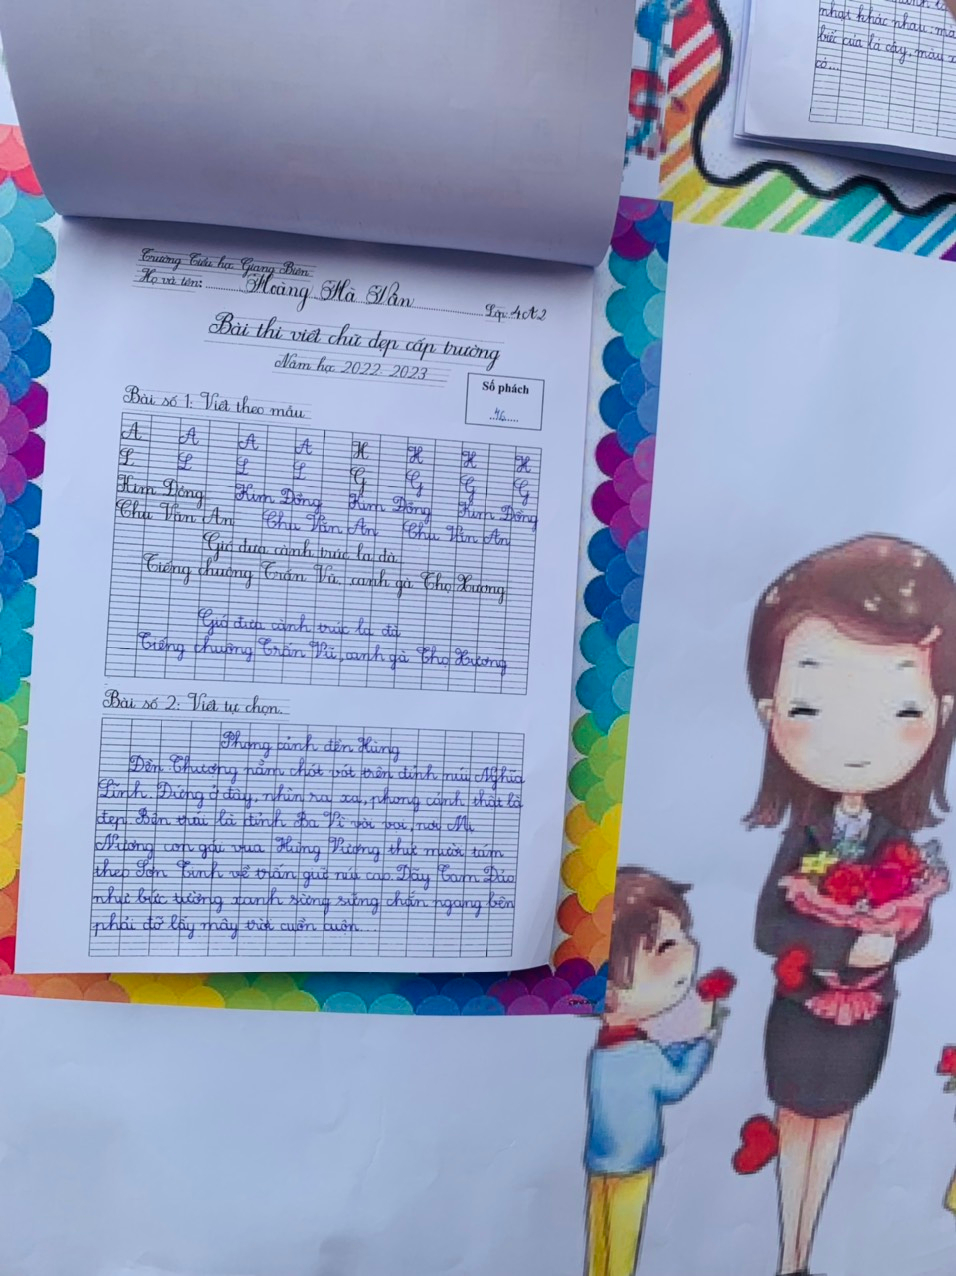 nhạt khác nhau: mà
bức của lá cây, màu
có...
Trường Tiểu học Giang Biên
Họ và tên: Hoàng Hà Vân Lớp: 4A2
Bài thi viết chữ đẹp cấp trường
Năm học 2022 2023
Số phách
46
Bài số 1: Viết theo mẫu
A A A A H H H H
L L L L G G G G
Kim Đồng Kim Đồng Kim Đồng Kim Đồng
Chu Văn An Chu Văn An Chu Văn An
Gió đưa cành trúc la đà
Tiếng chuông Trấn Vũ, canh gà Thọ Xương
Gió đưa cành trúc la đà
Tiếng chuông Trấn Vũ, canh gà Thọ Xương
Bài số 2: Viết tự chọn.
Phong cảnh đền Hùng
Đền Thượng nằm chót vót trên đỉnh núi Nghĩa
Lĩnh. Đứng ở đây, nhìn ra xa, phong cảnh thật là
đẹp. Bên trái là đỉnh Ba Vì vòi vọi, nơi Mị
Nương con gái vua Hùng Vương thứ mười tám
theo Sơn Tinh về trấn giữ núi cao. Dãy Tam Đảo
như bức tường xanh sừng sững chắn ngang bên
phải đỡ lấy mây trời cuồn cuộn...